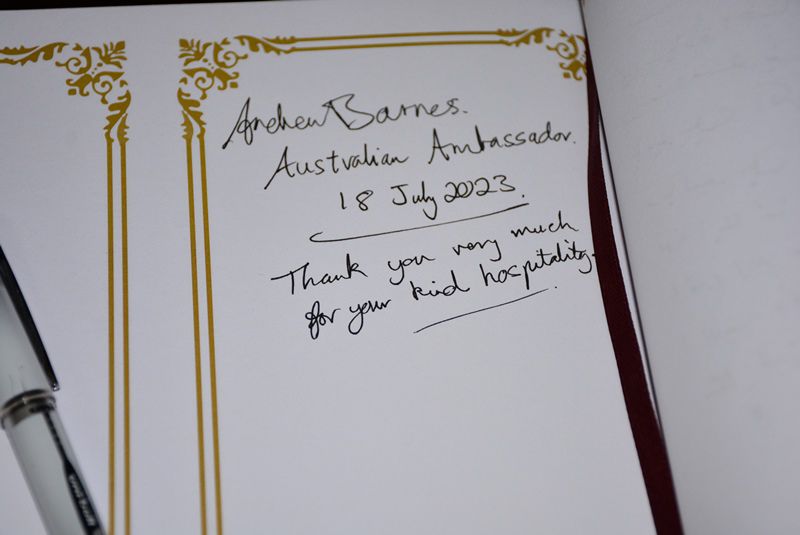 Andrew Barnes.
Australian Ambassador.
18 July 2023.
Thank you very much
for your kind hospitality.